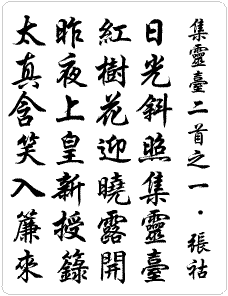 集靈臺二首之一·張祜
日光斜照集靈臺
紅樹花迎曉露開
昨夜上皇新授籙
太真含笑入簾來